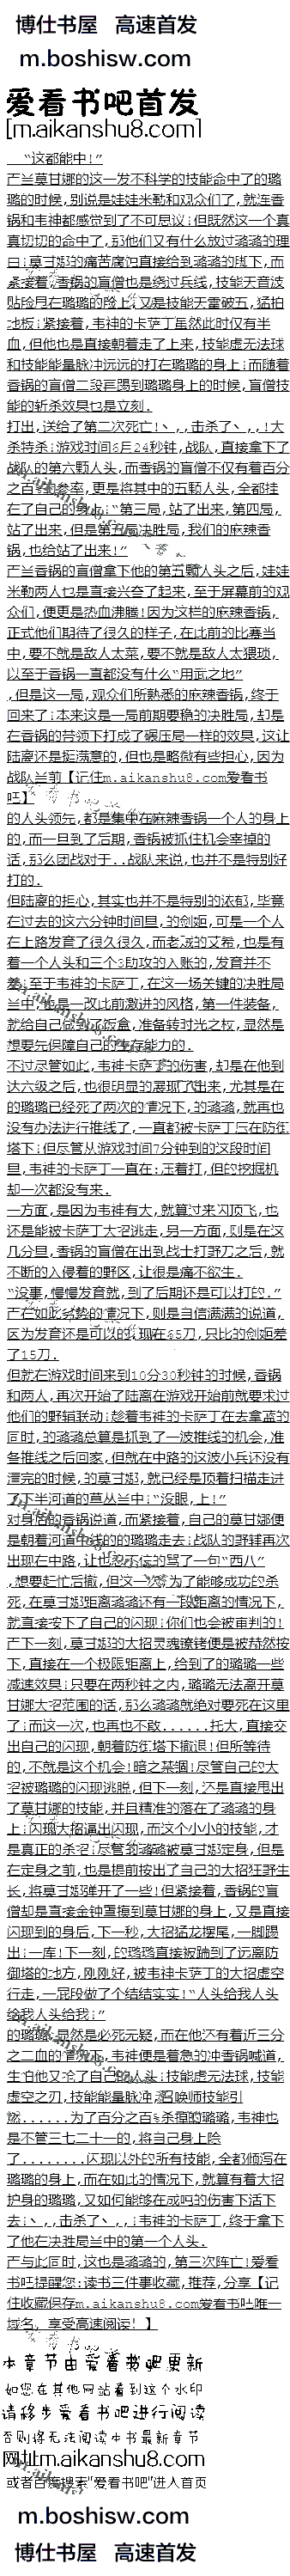 博仕书屋 高速首发
m.boshisw.com
爱看书吧首发
[m.aikanshu8.com]
“这都能中!”
产兰莫甘娜的这一发不科学的技能命中了的璐
璐的时候,别说是娃娃米勒和观众们了,就连香
锅和韦神都感觉到了不可思议!但既然这一个真
真切切的命中了,那他们又有什么放过璐璐的理
由!莫甘娜的痛苦腐蚀直接给到璐璐的脚下,而
紧接着,香锅的盲僧也是绕过兵线,技能天音波
贴脸月在璐璐的脸上,又是技能天雷破五,猛拍
地板!紧接着,韦神的卡萨丁虽然此时仅有半
血,但他也是直接朝着走了上来,技能虚无法球
和技能能量脉冲远远的打在璐璐的身上!而随着
香锅的盲僧二段再踢到璐璐身上的时候,盲僧技
能的斩杀效果也是立刻.
打出,送给了第二次死亡!丶,,击杀了丶,,!大
杀特杀!游戏时间6月24秒钟,战队,直接拿下了
战队的第六颗人头,而香锅的盲僧不仅有着百分
之百的参率,更是将其中的五颗人头,全都挂
在了自己的身上!“第三局,站了出来,第四局,
站了出来,但是第五局决胜局,我们的麻辣香
锅,也给站了出来!”
产兰香锅的盲僧拿下他的第五颗人头之后,娃娃
米勒两人也是直接兴奋了起来,至于屏幕前的观
众们,便更是热血沸腾!因为这样的麻辣香锅,
正式他们期待了很久的样子,在此前的比赛当
中,要不就是敌人太菜,要不就是敌人太猥琐,
以至于香锅一直都没有什么“用武之地”
,但是这一局,观众们所熟悉的麻辣香锅,终于
回来了!本来这是一局前期要稳的决胜局,却是
在香锅的带领下打成了碾压局一样的效果,这让
陆离还是挺满意的,但也是略微有些担心,因为
战队兰前【记住m.aikanshu8.com爱看书
吧】
的人头领先,都是集中在麻辣香锅一个人的身上
的,而一旦到了后期,香锅被抓住机会宰掉的
话,那么团战对于..战队来说,也并不是特别好
打的.
但陆离的担心,其实也并不是特别的浓郁,毕竟
在过去的这六分钟时间里,的剑姬,可是一个人
在上路发育了很久很久,而老贼的艾希,也是有
着一个人头和三个3助攻的入账的,发育并不
差,至于韦神的卡萨丁,在这一场关键的决胜局
兰中,也是一改此前激进的风格,第一件装备,
就给自己合成了疫盒,准备转时光之杖,显然是
想要先保障自己的生存能力的.
不过尽管如此,韦神卡萨丁的伤害,却是在他到
达六级之后,也很明显的展现了出来,尤其是在
的璐璐已经死了两次的情况下,的璐璐,就再也
没有办法进行推线了,一直都被卡萨丁压在防衔
塔下!但尽管从游戏时间7分钟到的这段时间
里,韦神的卡萨丁一直在!压着打,但的挖掘机
却一次都没有来.
一方面,是因为韦神有大,就算过来闪顶飞,也
还是能被卡萨丁大招逃走,另一方面,则是在这
几分里,香锅的盲僧在出到战士打野刀之后,就
不断的入侵着的野区,让很是痛不欲生.
“没事,慢慢发育就,到了后期还是可以打的.”
产在如此劣势的情况下,则是自信满满的说道,
因为发育还是可以的,现在65刀,只比的剑姬差
了15刀.
但就在游戏时间来到10分30秒钟的时候,香锅
和两人,再次开始了陆离在游戏开始前就要求过
他们的野辅联动!趁着韦神的卡萨丁在去拿蓝的
同时,的璐璐总算是抓到了一波推线的机会,准
备推线之后回家,但就在中路的这波小兵还没有
清完的时候,的莫甘娜,就已经是顶着扫描走进
了下半河道的草丛兰中!“没眼,上!”
对身后的香锅说道,而紧接着,自己的莫甘娜便
是朝着河道前的的璐璐走去!战队的野辅再次
出现在中路,让也忍不住的骂了一句“西八”
,想要赶忙后撤,但这一次,为了能够成功的杀
死,在莫甘娜距离璐璐还有一段距离的情况下,
就直接按下了自己的闪现!你们也会被审判的!
产下一刻,莫甘娜的大招灵魂镣铐便是被赫然按
下,直接在一个极限距离上,给到了的璐璐一些
减速效果!只要在两秒钟之内,璐璐无法离开莫
甘娜大招范围的话,那么璐璐就绝对要死在这里
了!而这一次,也再也不敢......托大,直接交
出自己的闪现,朝着防衔塔下撤退!但所等待
的,不就是这个机会!暗之禁锢!尽管自己的大
招被璐璐的闪现逃脱,但下一刻,还是直接甩出
了莫甘娜的技能,并且精准的落在了璐璐的身
上!闪现大招逼出闪现,而这个小小的技能,才
是真正的杀招!尽管的璐璐被莫甘娜定身,但是
在定身之前,也是提前按出了自己的大招狂野生
长,将莫甘娜弹开了一些!但紧接着,香锅的盲
僧却是直接金钟罩摸到莫甘娜的身上,又是直接
闪现到的身后,下一秒,大招猛龙摆尾,一脚踢
出!一库!下一刻,的璐璐直接被踹到了远离防
御塔的地方,刚刚好,被韦神卡萨丁的大招虚空
行走,一屁段做了个结结实实!“人头给我人头
给我人头给我!”
的璐璐,显然是必死无疑,而在他还有着近三分
之二血的情况下,韦神便是着急的冲香锅喊道,
生怕他又抢了自己的人头!技能虚无法球,技能
虚空之刃,技能能量脉冲,召唤师技能引
燃......为了百分之百杀掉的璐璐,韦神也
是不管三七二十一的,将自己身上除
了........闪现以外的所有技能,全都倾泻在
璐璐的身上,而在如此的情况下,就算有着大招
护身的璐璐,又如何能够在成吨的伤害下活下
去!丶,,击杀了丶,,!韦神的卡萨丁,终于拿下
了他在决胜局兰中的第一个人头.
产与此同时,这也是璐璐的,第三次阵亡!爱看
书吧提醒您:读书三件事收藏,推荐,分享【记
住收藏保存m.aikanshu8.com爱看书吧唯一
域名，享受高速阅读！】
本章节由爱看书吧更新
如您在其他网站看到这个水印
请移步爱看书吧进行阅读
否则将无法阅读本书最新章节
网址m.aikanshu8.com
或者百度搜索"爱看书吧"进入首页
m.boshisw.com
博仕书屋 高速首发